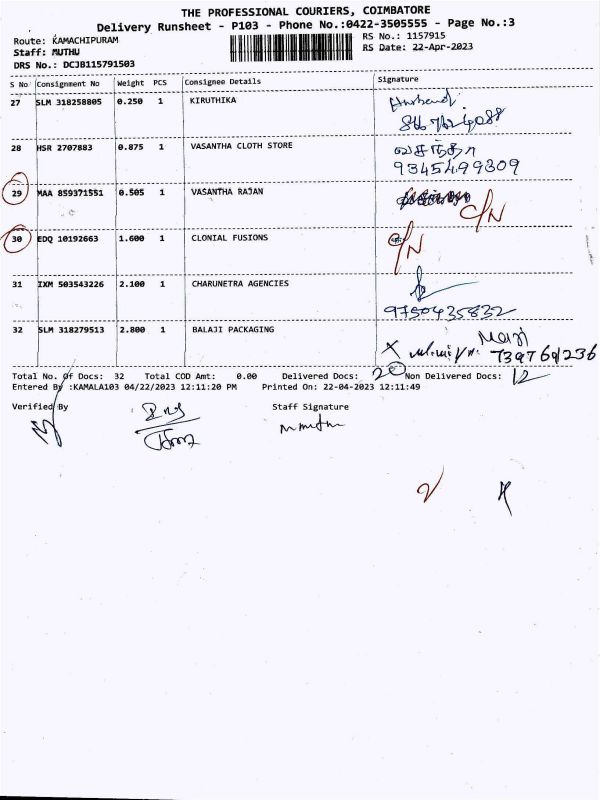 THE PROFESSIONAL COURIERS, COIMBATORE
Delivery Runsheet - P103 - Phone No.:0422-3505555 - Page No.:3
Route: KAMACHIPURAM
Staff: MUTHU
DRS No.: DCJB115791503
RS No.: 1157915
RS Date: 22-Apr-2023
S No Consignment No Weight PCS Consignee Details Signature
27 SLM 318258805 0.250 1 KIRUTHIKA Husband
28 HSR 2707883 0.875 1 VASANTHA CLOTH STORE வசந்தா
9345499809
29 MAA 859371551 0.505 1 VASANTHA RAJAN C/N
30 EDQ 10192663 1.600 1 CLONIAL FUSIONS C/N
31 IXM 503543226 2.100 1 CHARUNETRA AGENCIES
9750435832
32 SLM 318279513 2.800 1 BALAJI PACKAGING
Total No. Of Docs: 32 Total COD Amt: 0.00 Delivered Docs: 20 Non Delivered Docs: 12
Entered By :KAMALA103 04/22/2023 12:11:20 PM Printed On: 22-04-2023 12:11:49
Verified By Staff Signature